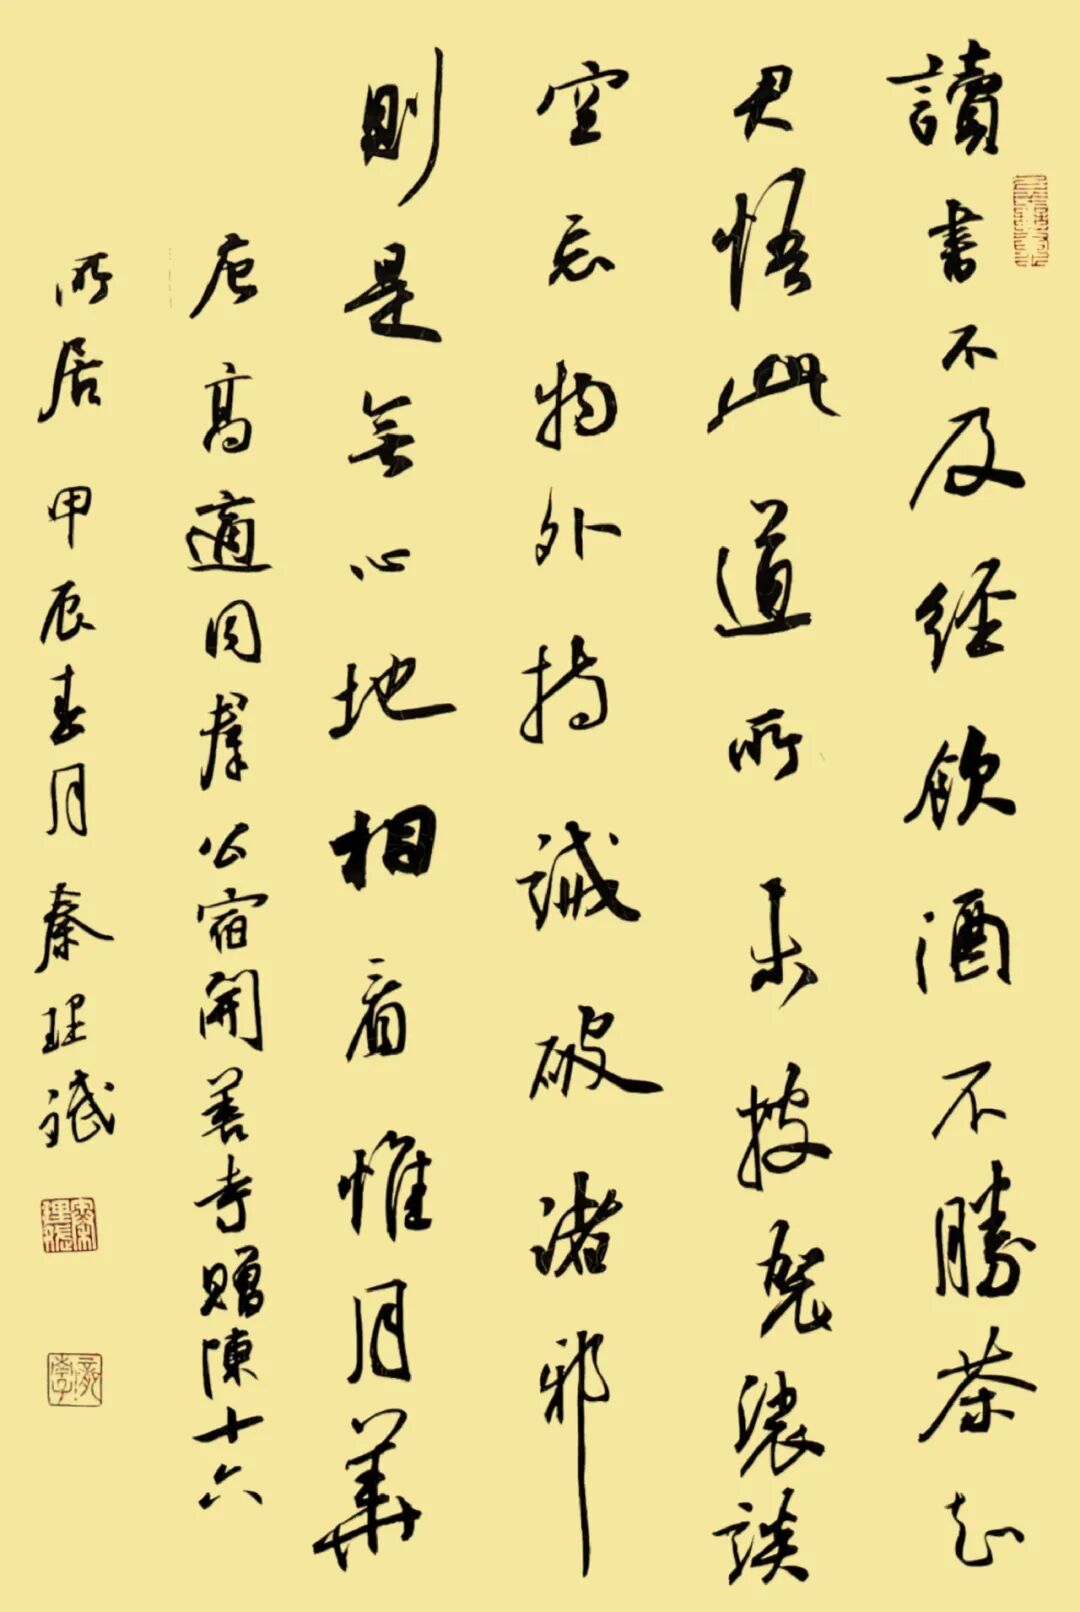 讀書不及經飲酒不勝茶知
君悟此道所未披袈裟談
空忘物外持誡破諸邪
則是無心地相看惟月華
唐高適同羣公宿開善寺贈陳十六
所居 甲辰春月 秦理斌